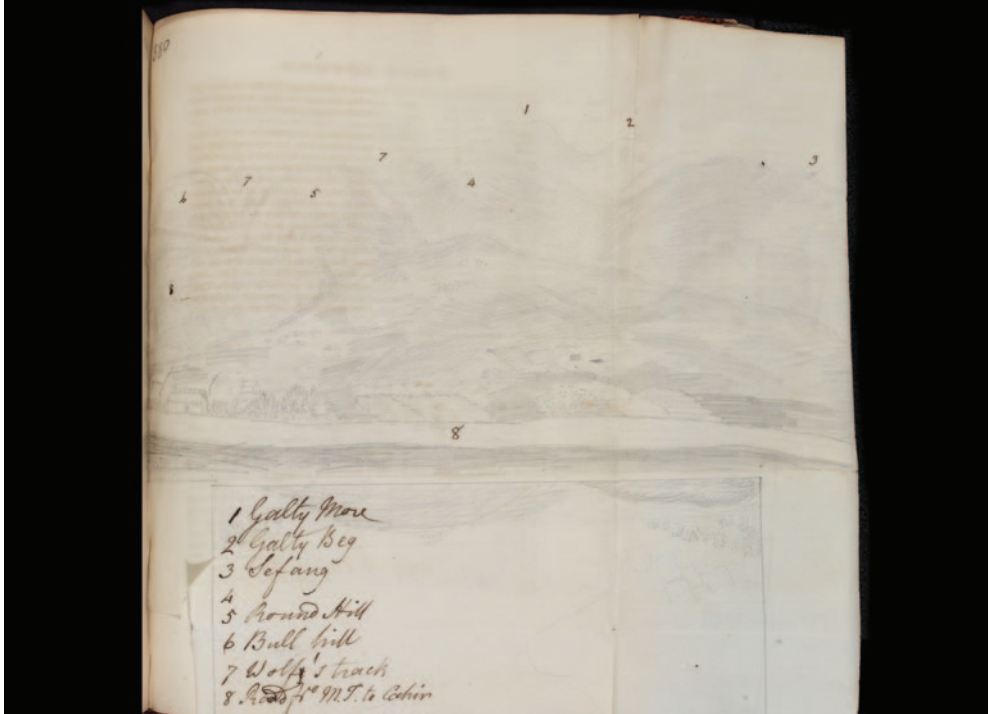 380
1
2
7
3
7
4
6
5
8
8
1 Galty More
2 Galty Beg
3 Sefang
4
5 Round Hill
6 Bull hill
7 Wolf's track
8 Road fr. M.T. to Cahir